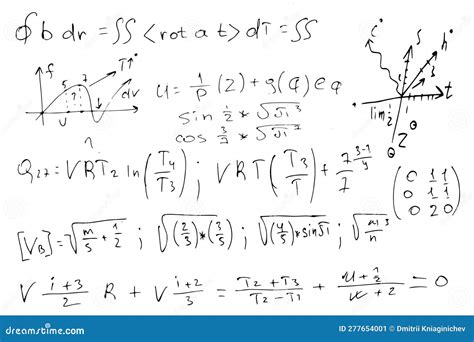 ∮ b dr = ∬ <rot a t> dT = ∬
f 5 7 T↑° dv
? v
u = 1/p (2) + g(a) e a
sin 1/2 * √√π³
cos 3/7 * √√π²
c s h° t 3
lim 1/2 1 2 θ θ
Q₂₇ = VRT₂ ln(T₄/T₃) ; VRT(T₃/T) + 7^(3-1/9)/7
(0 1 1
0 1 1
0 2 0)
[V_B] = √(m/5 + 1/2) ; √((2/3)*(3/5)) ; √((4/5)*sin π) ; √(m³/n)
V (i+3)/2 R + V (i+2)/3 = (T₂+T₃)/(T₂-T₁) + = 0
dreamstime.com
ID 277654001 © Dmitrii Kniaginichev